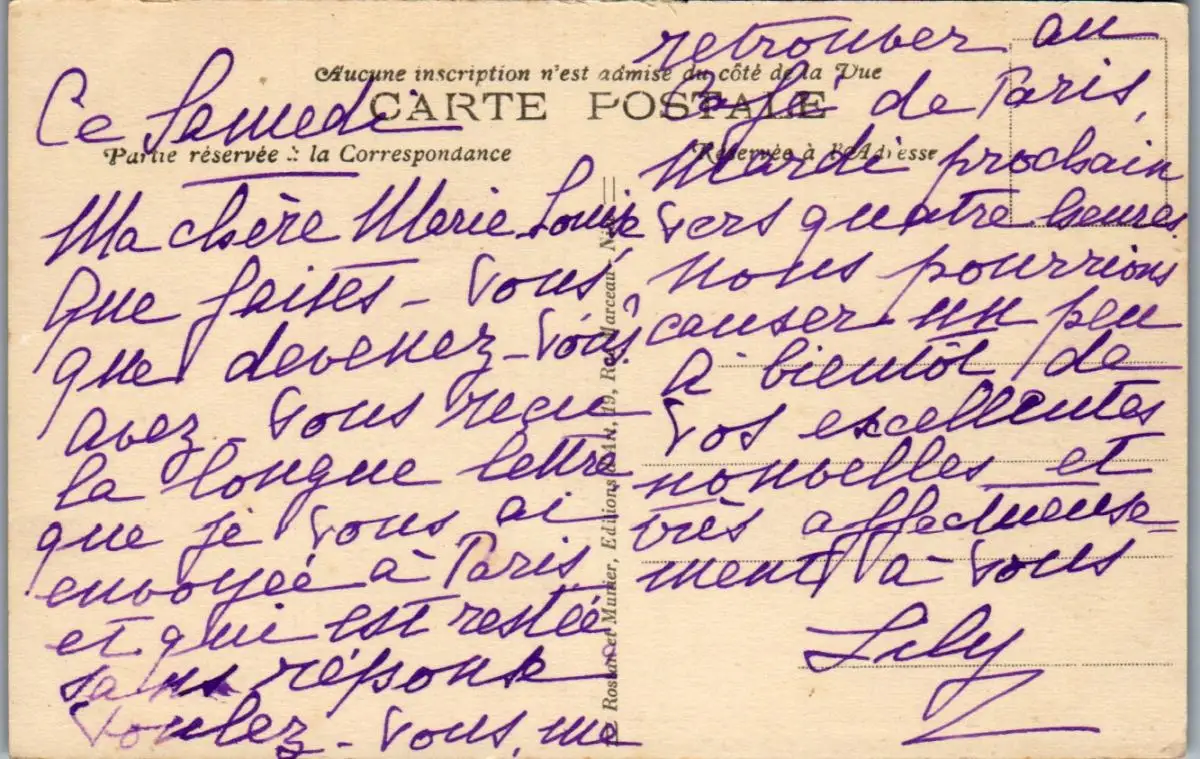 Aucune inscription n'est admise du côté de la Vue
CARTE POSTALE
Partie réservée à la Correspondance
Réservée à l'Adresse
Ce Samedi
Ma chère Marie Louise
Que faites-vous,
que devenez-vous?
avez vous reçu
la longue lettre
que je vous ai
envoyée à Paris
et qui est restée
sans réponse
Voulez-vous me
retrouver au
Café de Paris,
Mardi prochain
vers quatre heures
nous pourrions
causer un peu
A bientôt de
vos excellentes
nouvelles et
très affectueuse=
ment à vous
Lily
Rostan et Munier, Editions 19, Rue Marceau